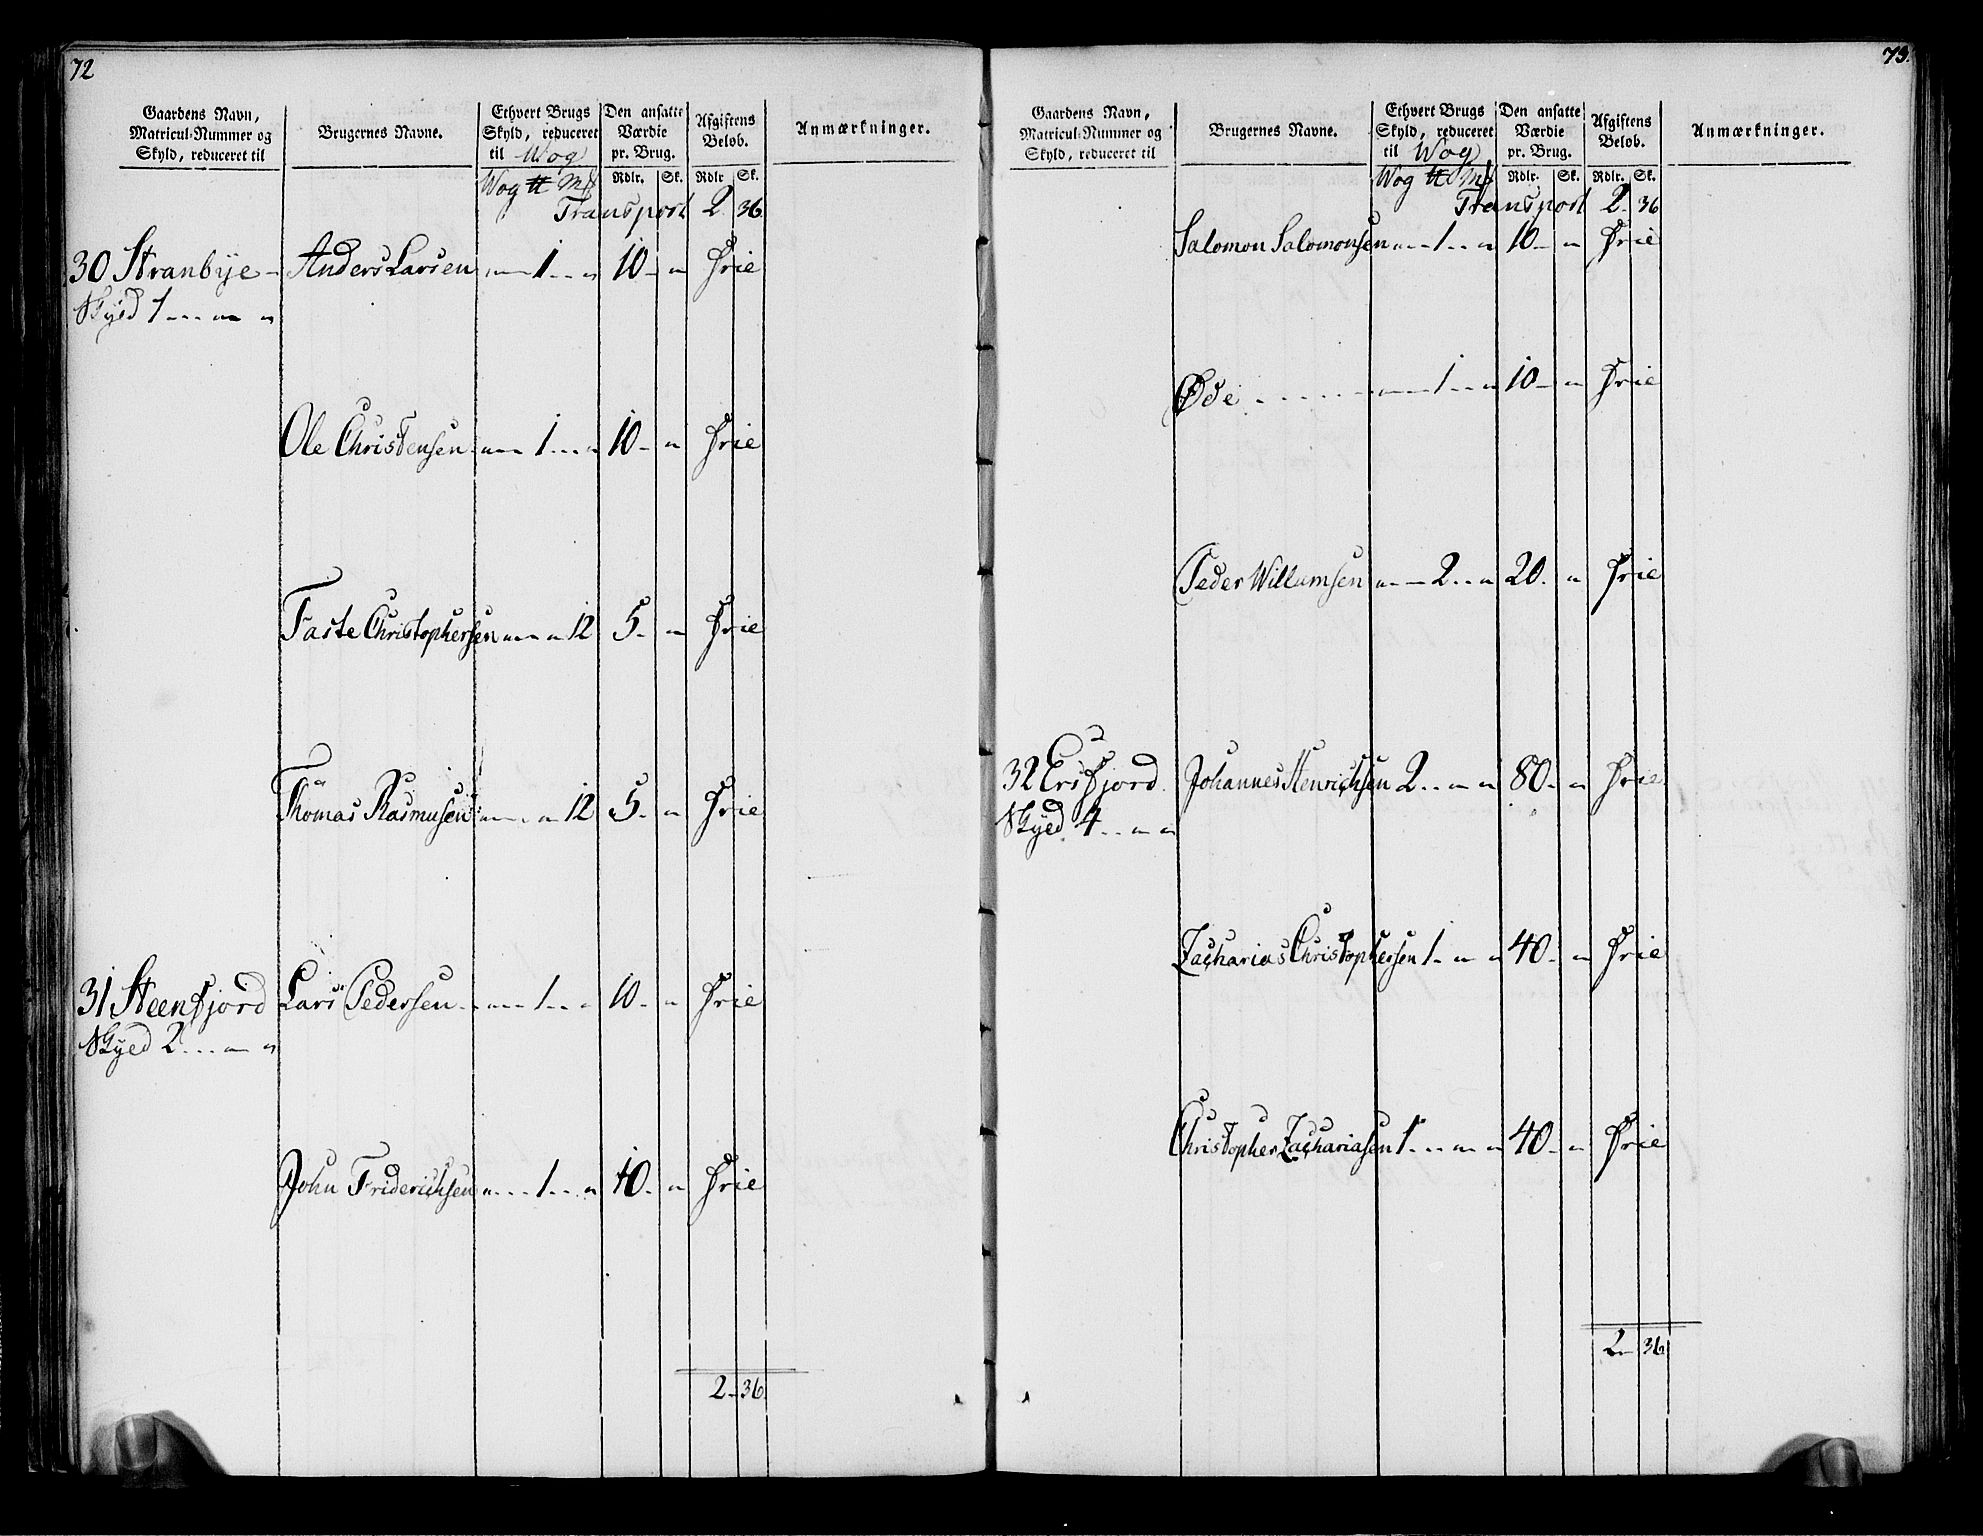 72
Gaardens Navn, Matricul-Nummer og Skyld, reduceret til
Brugernes Navne.
Ethvert Brugs Skyld, reduceret til Wog
Den ansatte Værdie pr. Brug.
Afgiftens Beløb.
Anmærkninger.
Wog ℔ Mk Rdlr. Sk. Rdlr Sk.
Transport 2 36
30 Stranbÿe - Anders Larsen " 1 " 10 - " Frie
Skÿld 1 - - - " "
Ole Christensen " 1 - - " 10 - " Frie
Faste Christophersen " " 12 5 - " Frie
Thomas Rasmusen " " 12 5 - " Frie
31 Steenfjord Lars Pedersen - " 1 - - " 10 - " Frie
Skÿld 2 - - - " "
John Friderichsen " - - - 1 - - " 10 - " Frie
2 - 36
73.
Gaardens Navn, Matricul-Nummer og Skyld, reduceret til
Brugernes Navne.
Ethvert Brugs Skyld, reduceret til Wog
Den ansatte Værdie pr. Brug.
Afgiftens Beløb.
Anmærkninger.
Wog ℔ Mk Rdlr. Sk. Rdlr. Sk.
Transport 2 - 36
Salomon Salomonsen " - 1 - - " 10 - " Frie
Øde - - - - - " - 1 - - " 10 - " Frie
Peder Willumsen " - 2 - - " 20 - " Frie
32 Ersfjord. Johannes Henrichsen 2 - - " " 80 - " Frie
Skÿld 4 - - " "
Zacharias Christophersen 1 - " " 40 - " Frie
Christopher Zachariasen 1 - - " " 40 - " Frie
2 - 36